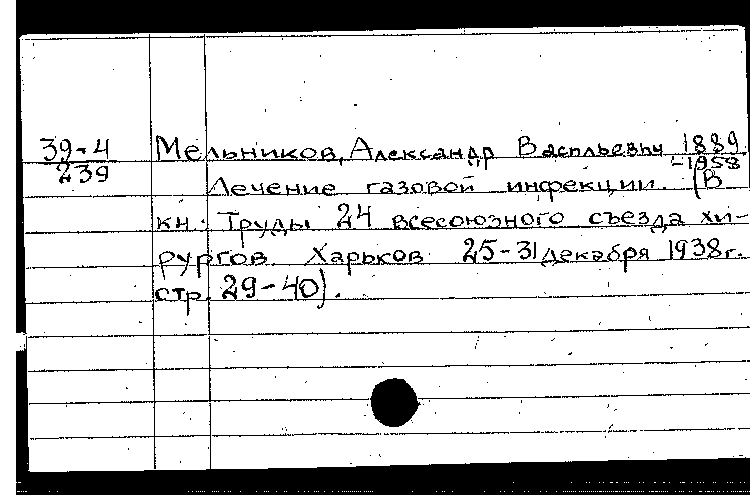 39-4
239
Мельников, Александр Васильевич 1889
-1958
Лечение газовой инфекции. (В
кн: Труды 24 всесоюзного съезда хи-
рургов. Харьков 25-31 декабря 1938г.
стр. 29-40).